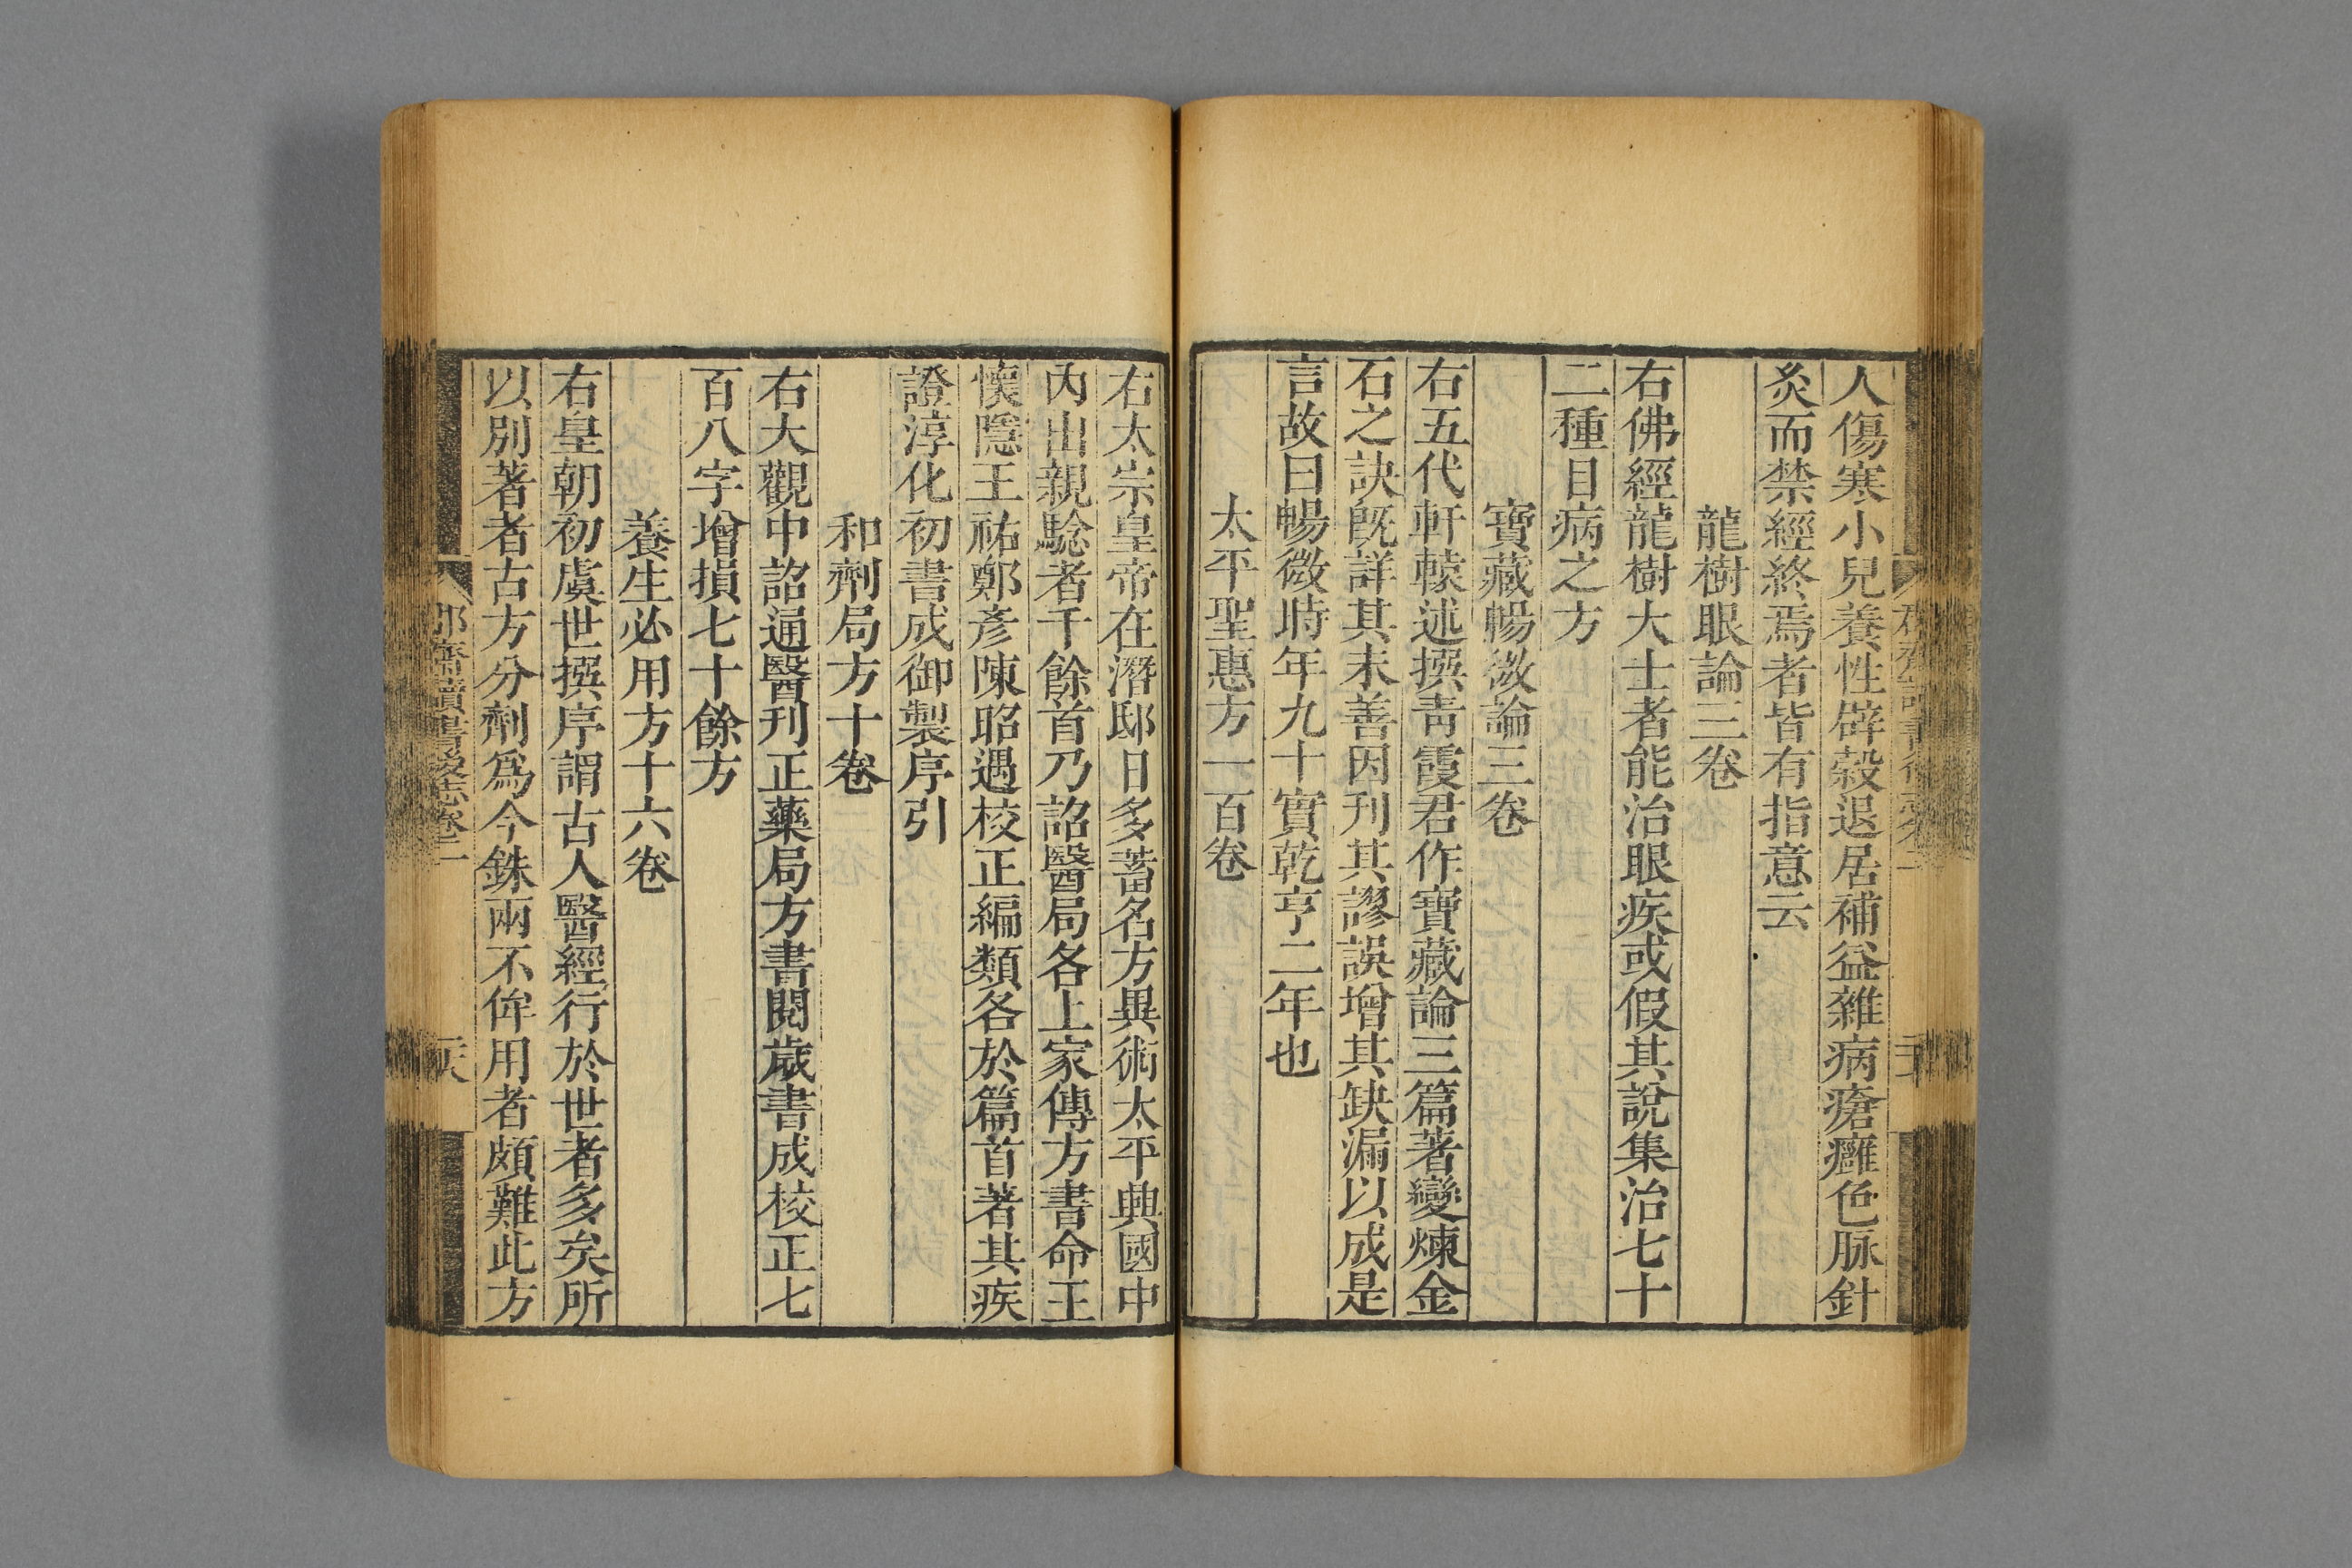 人傷寒小兒養性辟穀退居補益雜病瘡癰色脉針
灸而禁經終焉者皆有指意云
龍樹眼論三卷
右佛經龍樹大士者能治眼疾或假其說集治七十
二種目病之方
寶藏暢微論三卷
右五代軒轅述撰靑霞君作寶藏論三篇著變煉金
石之訣旣詳其未善因刊其謬誤增其缺漏以成是
言故曰暢微時年九十實乾亨二年也
太平聖惠方一百卷
右太宗皇帝在潛邸日多蓄名方異術太平興國中
內出親驗者千餘首乃詔醫局各上家傳方書命王
懷隱王祐鄭彥陳昭遇校正編類各於篇首著其疾
證淳化初書成御製序引
和劑局方十卷
右大觀中詔通醫刊正藥局方書閱歲書成校正七
百八字增損七十餘方
養生必用方十六卷
右皇朝初虞世撰序謂古人醫經行於世者多矣所
以別著者古方分劑爲今銖兩不侔用者頗難此方
郡齋讀書後志卷二